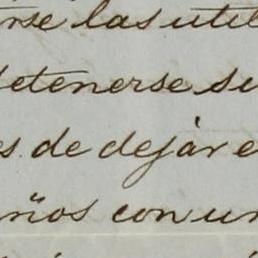 rse las util
detenerse su
es de dejár e
ños con un